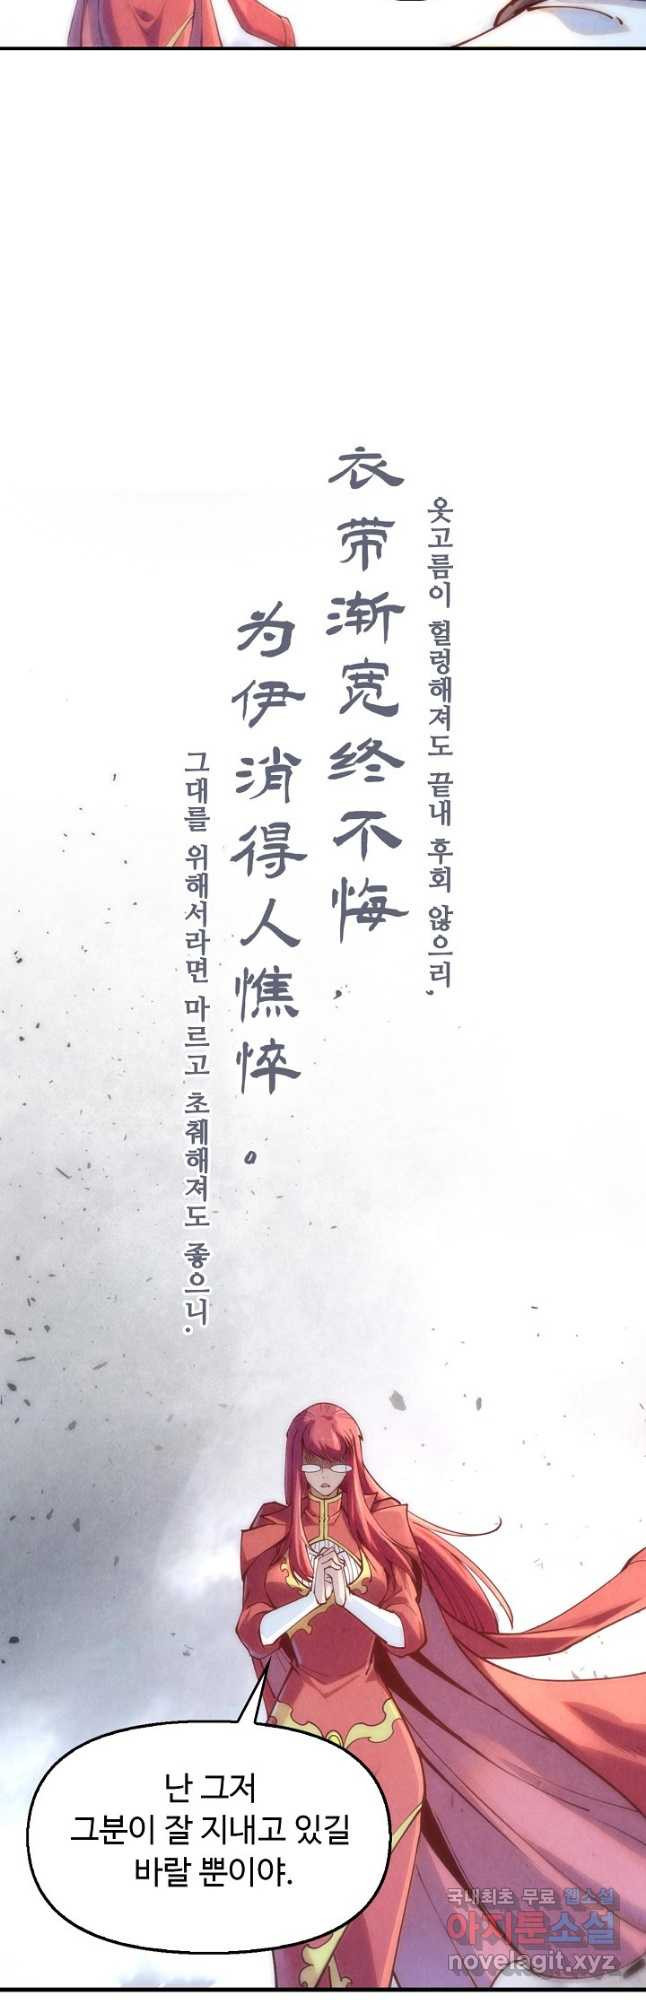 옷고름이 헐렁해져도 끝내 후회 않으리,
衣带渐宽终不悔，
为伊消得人憔悴。
그대를 위해서라면 마르고 초췌해져도 좋으니.
난 그저
그분이 잘 지내고 있길
바랄 뿐이야.
국내최초 무료 웹소설
아지툰소설
novelagit.xyz